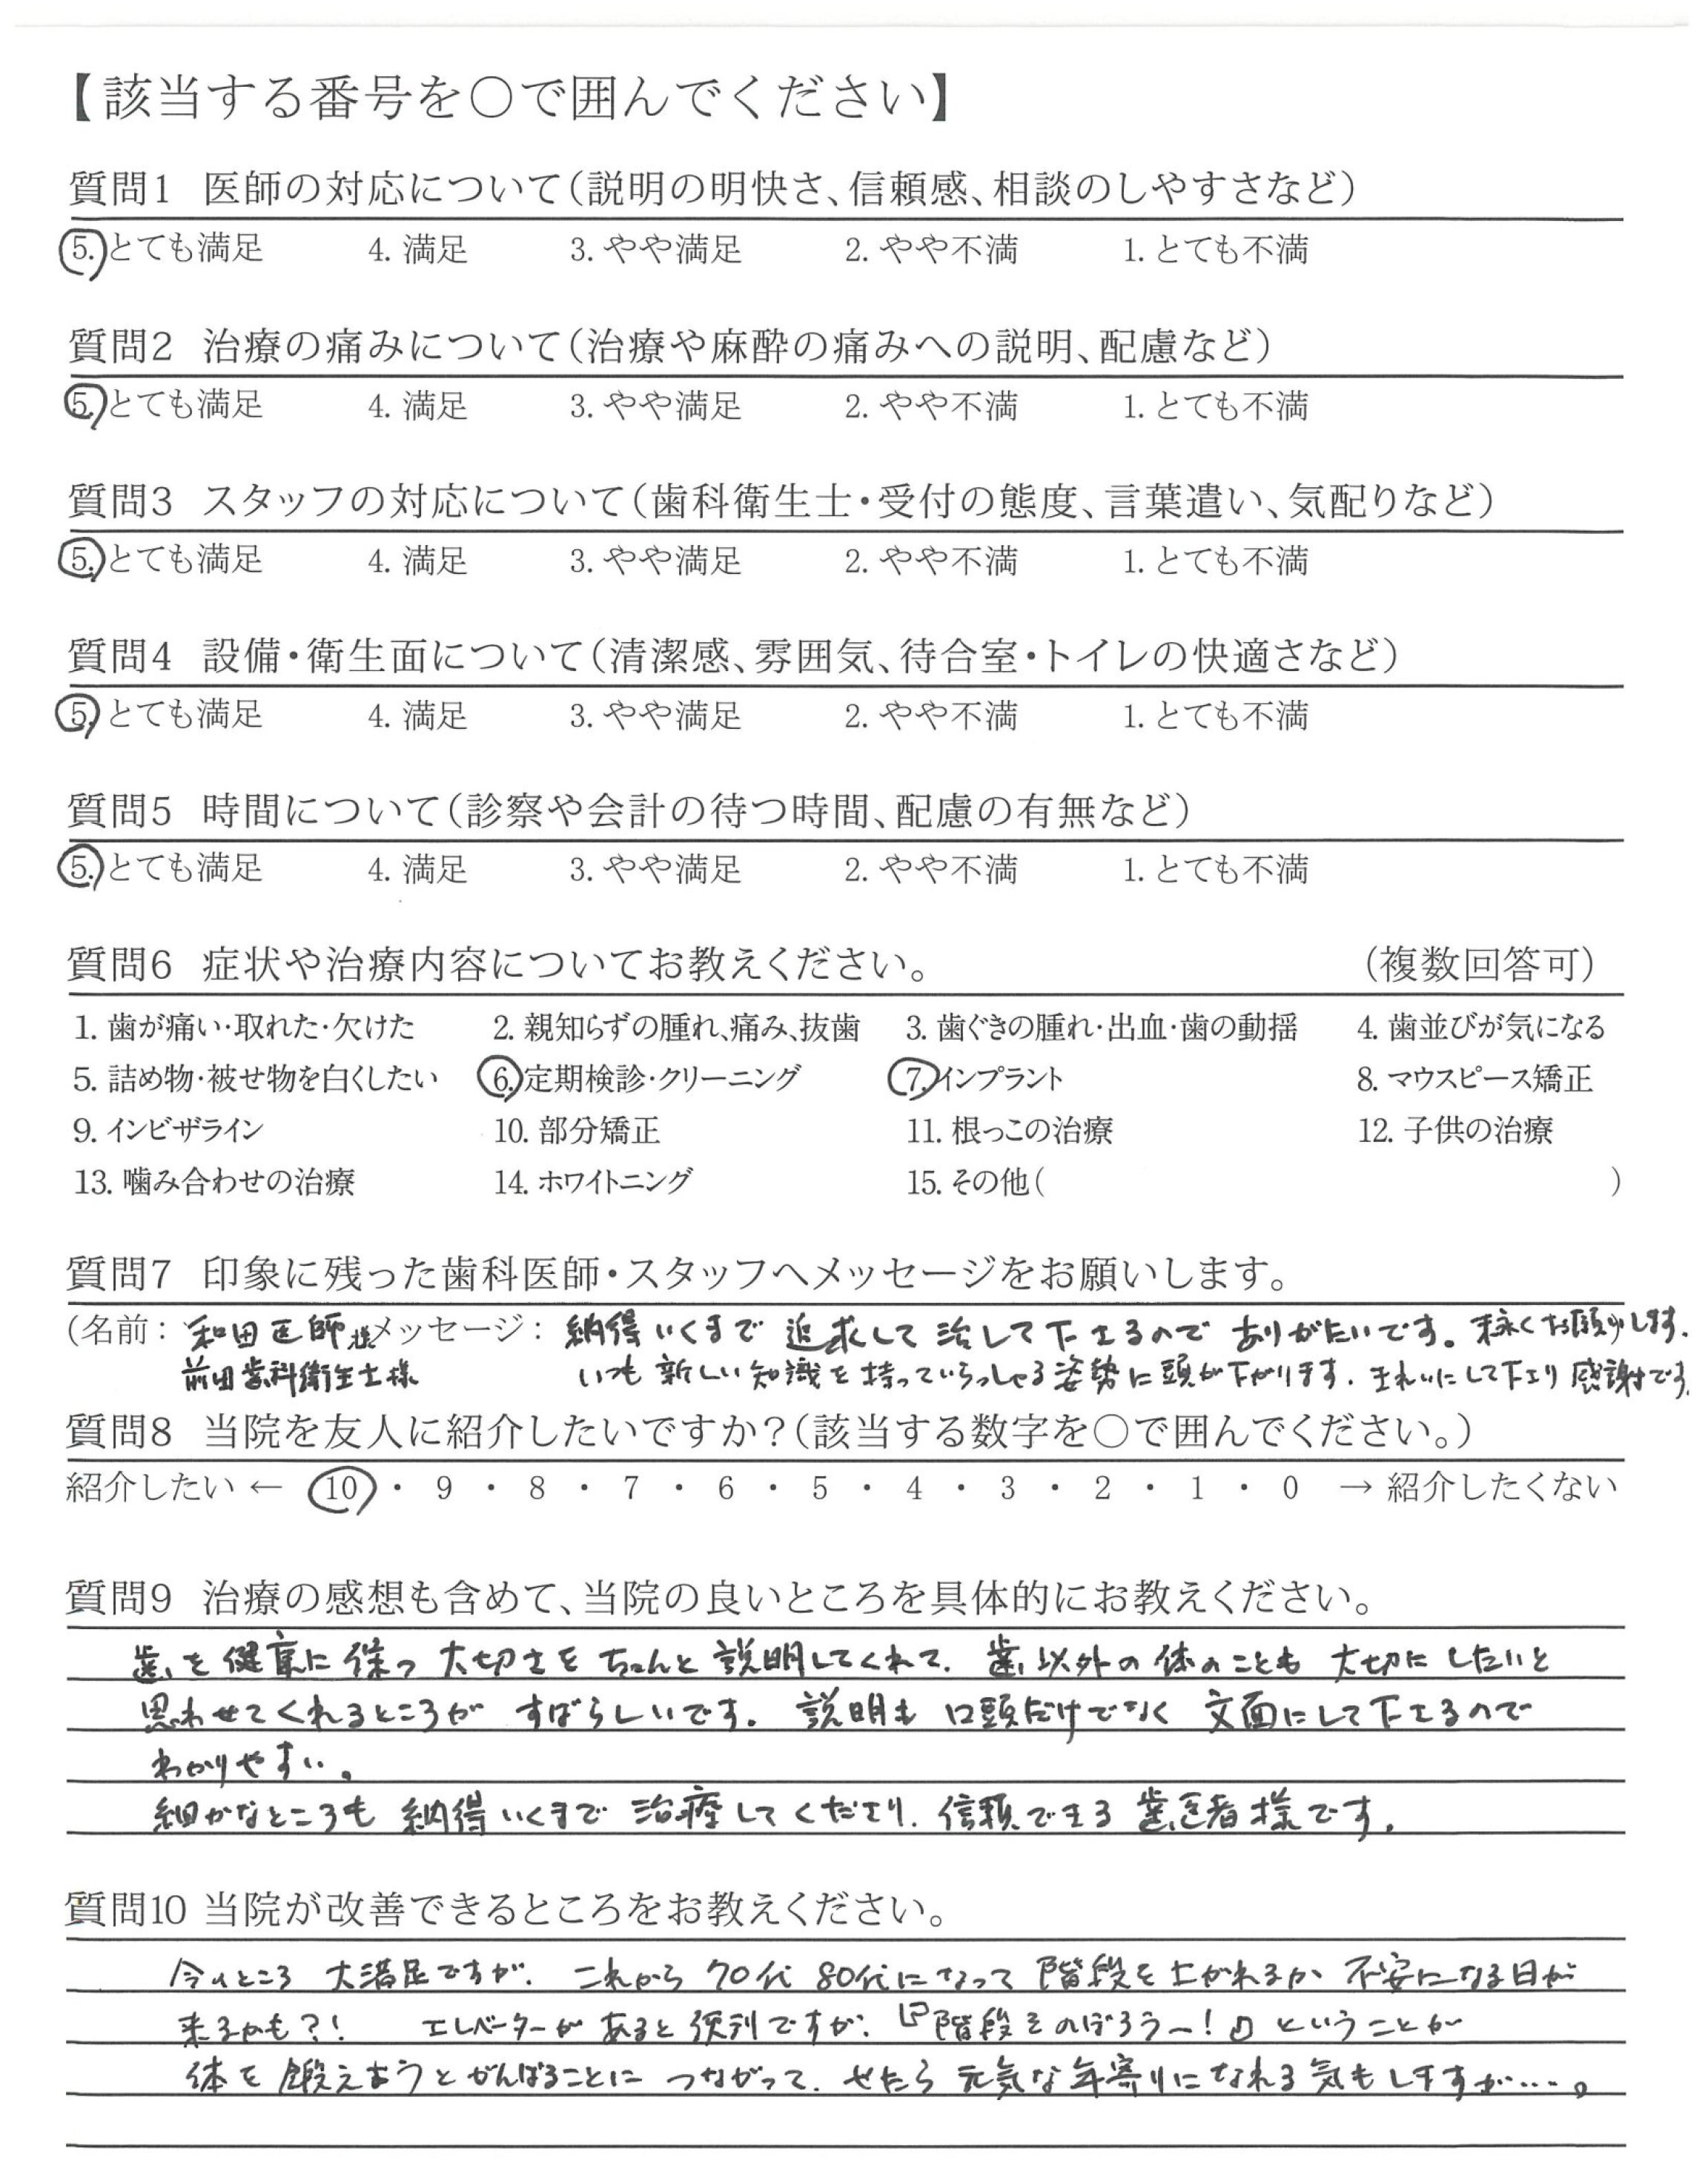 【該当する番号を○で囲んでください】
質問1 医師の対応について(説明の明快さ、信頼感、相談のしやすさなど)
5. とても満足 4. 満足 3. やや満足 2. やや不満 1. とても不満
質問2 治療の痛みについて(治療や麻酔の痛みへの説明、配慮など)
5. とても満足 4. 満足 3. やや満足 2. やや不満 1. とても不満
質問3 スタッフの対応について(歯科衛生士・受付の態度、言葉遣い、気配りなど)
5. とても満足 4. 満足 3. やや満足 2. やや不満 1. とても不満
質問4 設備・衛生面について(清潔感、雰囲気、待合室・トイレの快適さなど)
5. とても満足 4. 満足 3. やや満足 2. やや不満 1. とても不満
質問5 時間について(診察や会計の待つ時間、配慮の有無など)
5. とても満足 4. 満足 3. やや満足 2. やや不満 1. とても不満
質問6 症状や治療内容についてお教えください。 (複数回答可)
1. 歯が痛い・取れた・欠けた 2. 親知らずの腫れ、痛み、抜歯 3. 歯ぐきの腫れ・出血・歯の動揺 4. 歯並びが気になる
5. 詰め物・被せ物を白くしたい 6. 定期検診・クリーニング 7. インプラント 8. マウスピース矯正
9. インビザライン 10. 部分矯正 11. 根っこの治療 12. 子供の治療
13. 噛み合わせの治療 14. ホワイトニング 15. その他( )
質問7 印象に残った歯科医師・スタッフへメッセージをお願いします。
(名前: 和田医師様 メッセージ: 納得いくまで 追求して 治して下さるので ありがたいです。末永くお願いします。
前田歯科衛生士様 いつも 新しい知識を 持っていらっしゃる姿勢に頭が下がります. きれいにして下さり 感謝です.
質問8 当院を友人に紹介したいですか?(該当する数字を○で囲んでください。)
紹介したい ← 10 ・ 9 ・ 8 ・ 7 ・ 6 ・ 5 ・ 4 ・ 3 ・ 2 ・ 1 ・ 0 → 紹介したくない
質問9 治療の感想も含めて、当院の良いところを具体的にお教えください。
歯を健康に保つ 大切さを ちゃんと 説明してくれて. 歯以外の体のことも 大切にしたいと
思わせてくれるところが すばらしいです。 説明も 口頭だけでなく 文面にして下さるので
わかりやすい。
細かなところも 納得いくまで 治療してくださり. 信頼できる 歯医者様です.
質問10 当院が改善できるところをお教えください。
今のところ 大満足ですが. これから 70代 80代になって 階段を上がれるか 不安になる日が
来るかも?! エレベーターが あると便利ですが. 『階段をのぼろう〜!』ということが
体を 鍛えようとがんばることに つながって. せたら 元気な年寄りになれる気もしますが…。